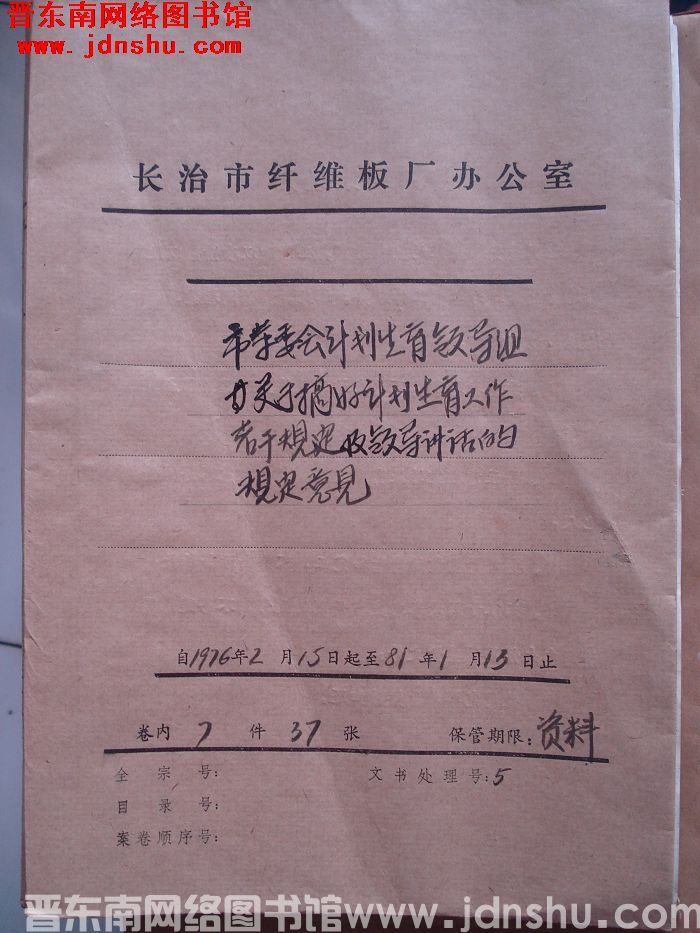 晋东南网络图书馆
www.jdnshu.com
长治市纤维板厂办公室
市革委会计划生育领导组
才关于搞好计划生育工作
若干规定及领导讲话的
规定意见
自1976年2月15日起至81年1月13日止
卷内7件37张 保管期限：资料
全宗号： 文书处理号：5
目录号：
案卷顺序号：
晋东南网络图书馆 www.jdnshu.com